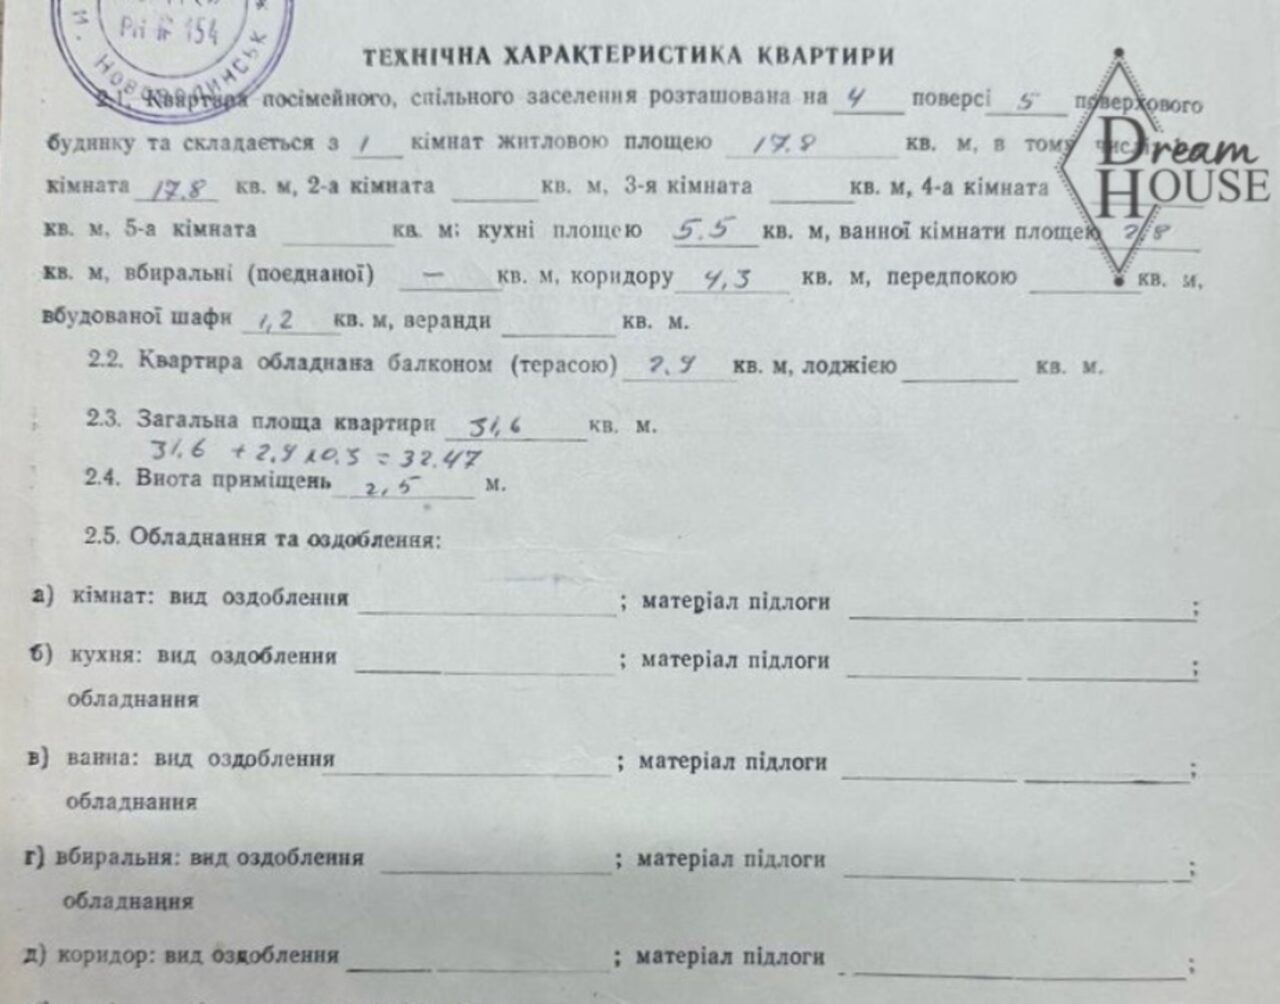 Рп № 154
м. Нововолинськ *
ТЕХНІЧНА ХАРАКТЕРИСТИКА КВАРТИРИ
2.1. Квартира посімейного, спільного заселення розташована на 4 поверсі 5 поверхового
будинку та складається з 1 кімнат житловою площею 17.8 кв. м, в тому числі
Dream
HOUSE
кімната 17.8 кв. м, 2-а кімната кв. м, 3-я кімната кв. м, 4-а кімната
кв. м, 5-а кімната кв. м; кухні площею 5.5 кв. м, ванної кімнати площею 2,8
кв. м, вбиральні (поєднаної) — кв. м, коридору 4,3 кв. м, передпокою кв. м,
вбудованої шафи 1,2 кв. м, веранди кв. м.
2.2. Квартира обладнана балконом (терасою) 2.9 кв. м, лоджією кв. м.
2.3. Загальна площа квартири 31,6 кв. м.
31.6 + 2.9 х0.3 = 32.47
2.4. Виота приміщень 2,5 м.
2.5. Обладнання та оздоблення:
а) кімнат: вид оздоблення ; матеріал підлоги ;
б) кухня: вид оздоблення ; матеріал підлоги ;
обладнання
в) ванна: вид оздоблення ; матеріал підлоги ;
обладнання
г) вбиральня: вид оздоблення ; матеріал підлоги ;
обладнання
д) коридор: вид оздоблення ; матеріал підлоги ;